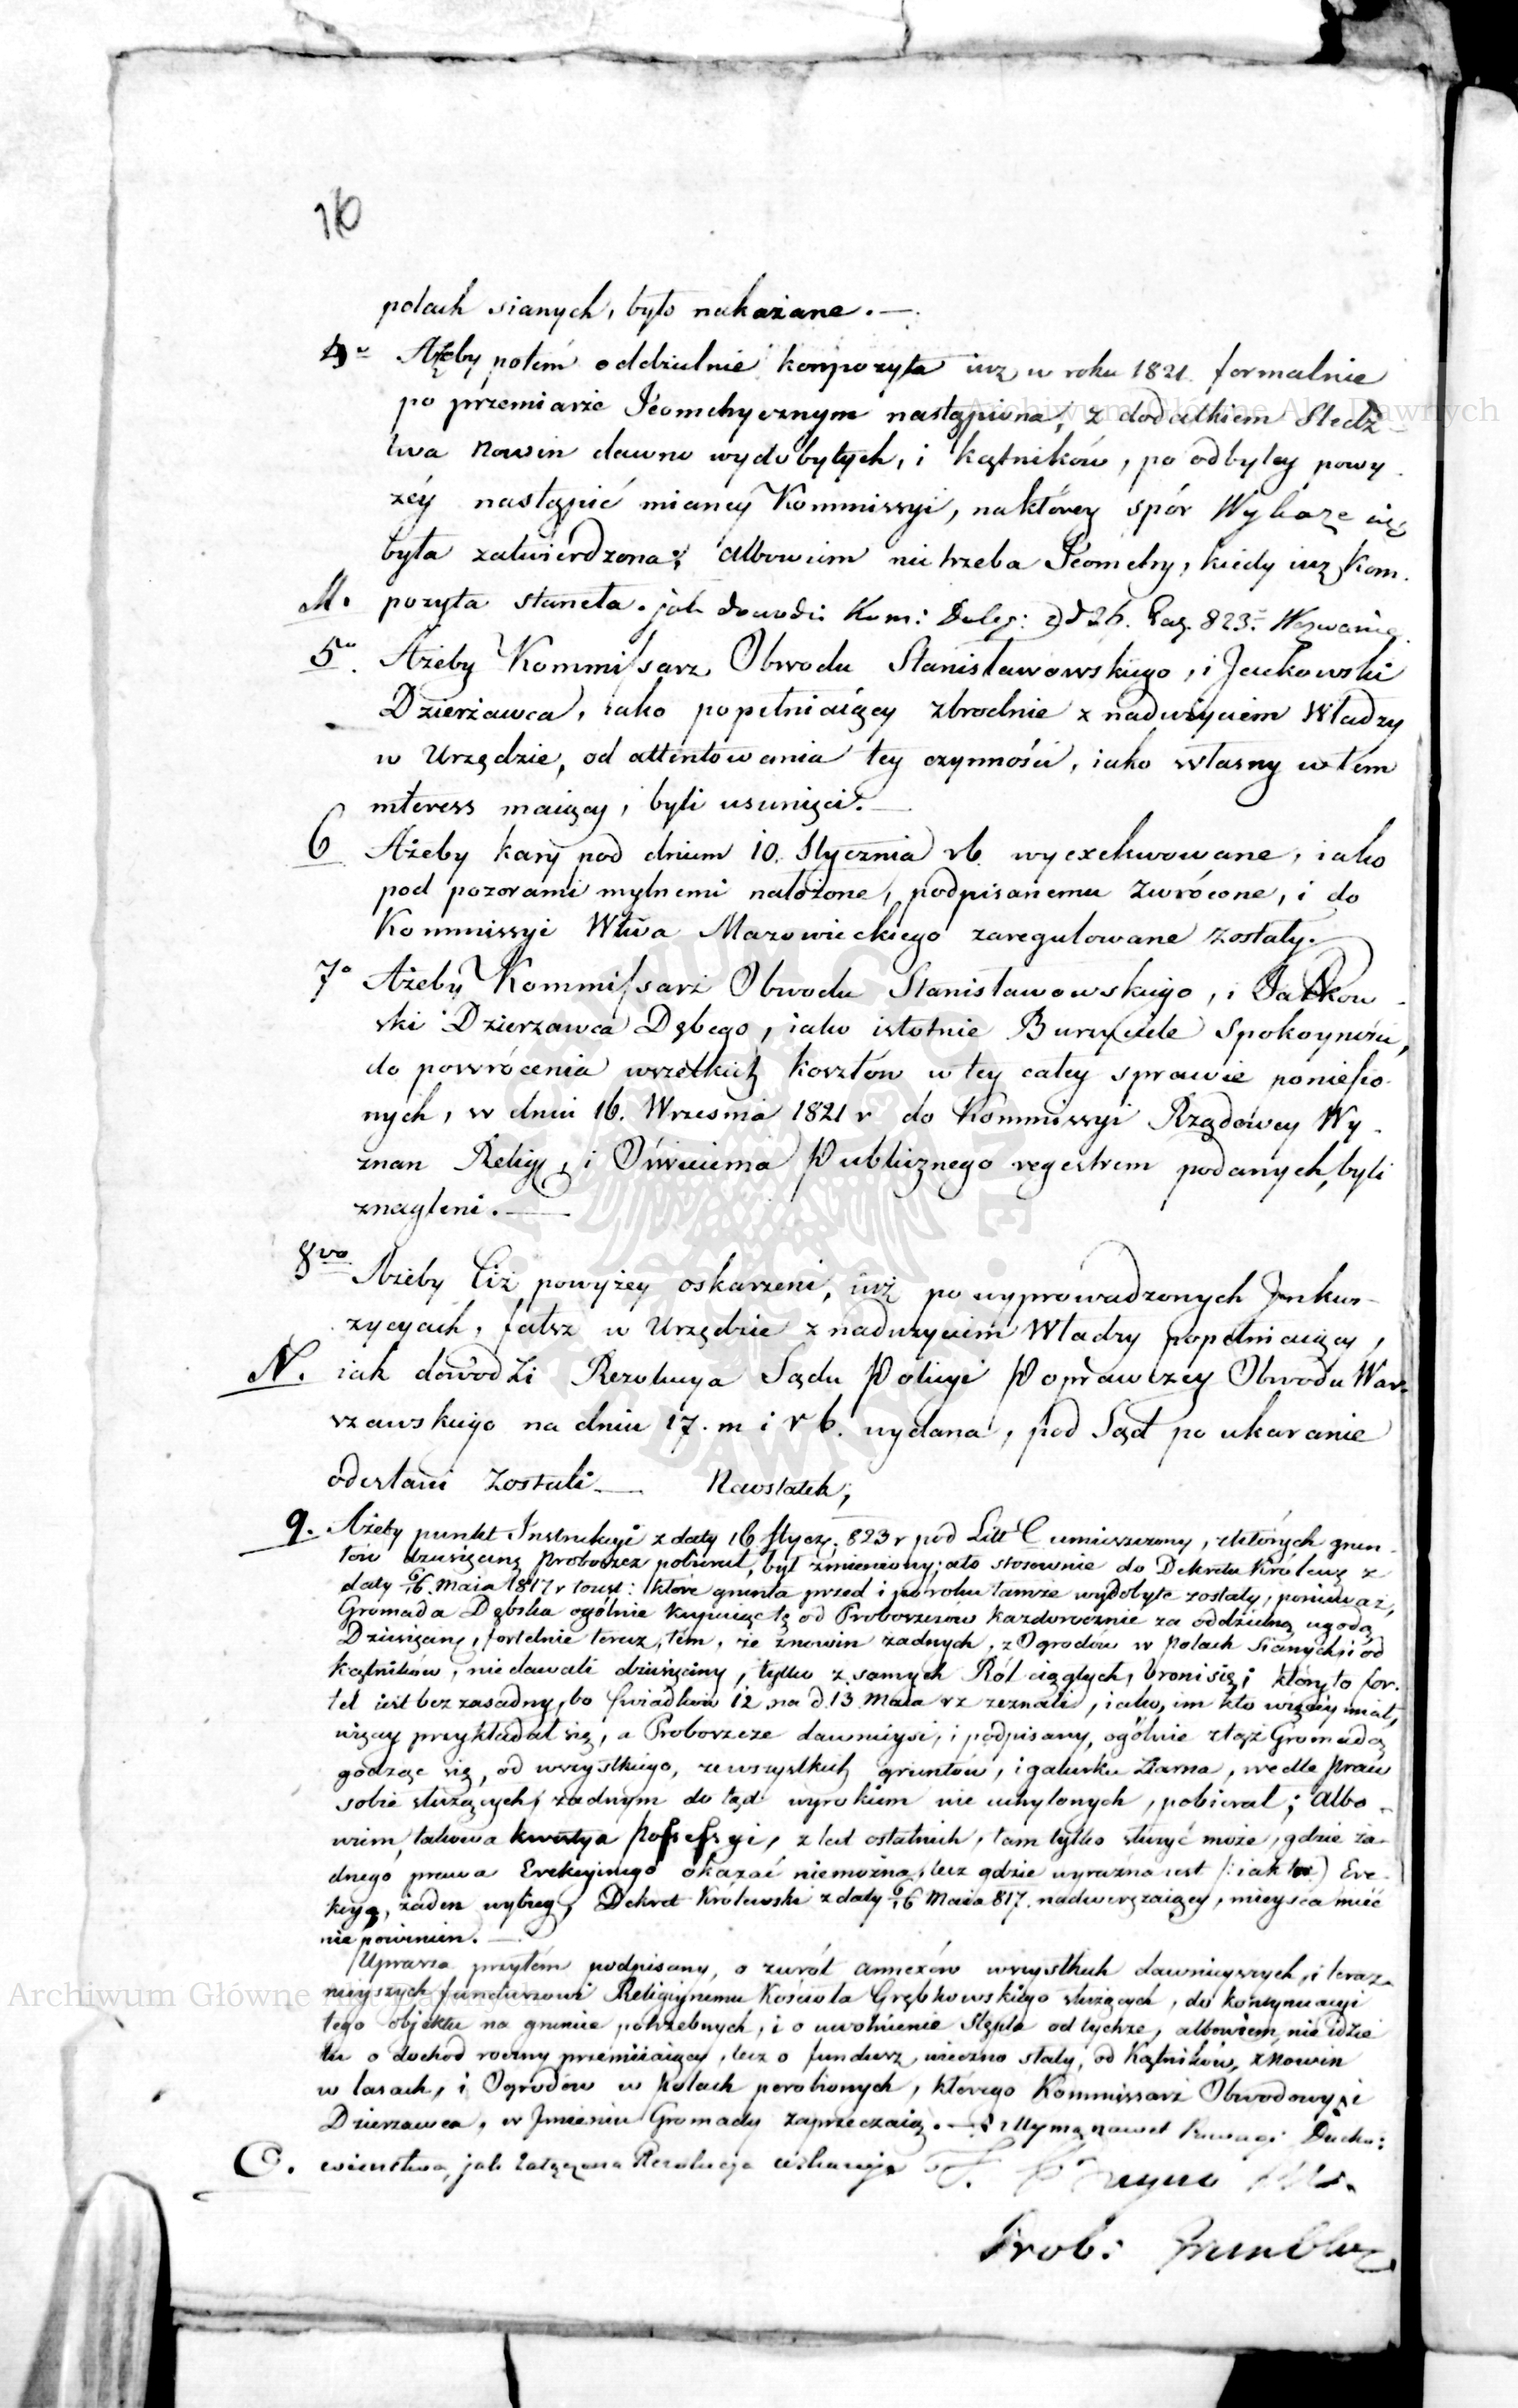 16
polach sianych, było nakazane. —
4o Ażeby potem oddzielnie kompozyta iuż w roku 1821 formalnie
po przemiarze Jeometrycznym nastąpiona, z dodatkiem Sledz
twa Nowin dawno wydobytych, i kątników, po odbytey powy
żéy nastąpić mianéy Kommissyi, na którey spór Wykaże się
była zatwierdzona; albowiem nie trzeba Jeometry, kiedy iuż Kom.
M. pozyta stanęła. jak dowodzi Kom: Deleg: d 26. Paz. 823. Wezwanie.
5o. Ażeby Kommissarz Obwodu Stanisławowskiego, i Jackowski
Dzierżawca, iako popełniaiący zbrodnie z nadużyciem Władzy
w Urzędzie, od attentowania tey czynności, iako własny w tem
interess maiący, byli usunięci. —
6 Ażeby kary pod dniem 10. Stycznia rb. wyexekwowane, iako
pod pozorami mylnemi nałożone, podpisanemu zwrócone, i do
Kommissyi Wtwa Mazowieckiego zaregulowane zostały.
7o Ażeby Kommissarz Obwodu Stanisławowskiego, i Jackow
ski Dzierzawca Dębego, iako istotnie Burzyciele Spokoyności,
do powrócenia wszelkich kosztów w tey całey sprawie poniesio
nych, w dniu 16. Wrzesnia 1821 r do Kommissyi Rządowey Wy
znan Relig. i Oświecenia Publicznego regestrem podanych, byli
znagleni. —
8vo Ażeby Ciż powyżey oskarzeni, iuż po wyprowadzonych Jnkwi
zycyach, fałsz w Urzędzie z nadurzyciem Władzy popełniaiący,
N. iak dowodzi Rezolucya Sądu Policyi Poprawczey Obwodu War
szawskiego na dniu 17. m i r b. wydana, pod Sąd po ukaranie
odesłani zostali — Naostatek,
9. Ażeby punkt Instrukcyi z daty 16 Stycz. 823 r pod Litt C umieszczony, z których grun
tów dziesięcinę Proboszcz pobierał, był zmieniony; ato stosownie do Dekretu Królew. z
daty 6/16. Maia 1817 r to iest: które grunta przed i po roku tamże wydobyte zostały, ponieważ,
Gromada Dębska ogólnie kupuiąc tę od Proboszczów każdorocznie za oddzielną ugodą
Dziesięcinę, fortelnie teraz, tém, że znowin żadnych, z Ogrodów w Polach Sianych i od
kątników, nie dawali dziesięciny, tylko z samych Ról ciągłych, broni się; który to for
tel iest bez zasadny, bo świadków 12 na d. 13. Maia rz zeznali, iako, im kto więcéy miał,
więcey przykładał się, a Proboszcze dawnieysi, i podpisany, ogólnie z taż Gromadą
godząc się, od wszystkiego, ze wszystkich gruntów, i gatunku Ziarna, wedle praw
sobie służących, żadnym do tąd wyrokiem nie uchylonych, pobierał; Albo
wiem, takowa kwestya Possessyi, z lat ostatnich, tam tylko służyć może, gdzie ża
dnego prawa Erekcyinego okazać niemożna, lecz gdzie wyraźna iest (: iak tu :) Ere
kcya, żaden wybieg, Dekret Królewski z daty 6/16 Maia 817. nadwerężaiący, mieysca mieć
nie powinien. —
Uprasza przytém podpisany, o zwrót annexów wszystkich dawnieyszych, i teraz
nieyszych funduszowi Religiynemu Kościoła Grębkowskiego służących, do kontynuacyi
tego objektu na gruncie potrzebnych, i o uwolnienie Stępla od tychże, albowiem, nie idzie
tu o dochod roczny przemiiaiący, lecz o fundusz wieczno stały, od Kątników, z Nowin
w lasach, i Ogrodów w Polach porobionych, którego Kommissarz Obwodowy i
Dzierzawca, w Jmieniu Gromady zaprzeczaią. — nawet Ducho:
O. wieństwa, jak załączona Rezolucya
Prob:
Archiwum Główne Akt Dawnych
Archiwum Główne Akt Dawnych